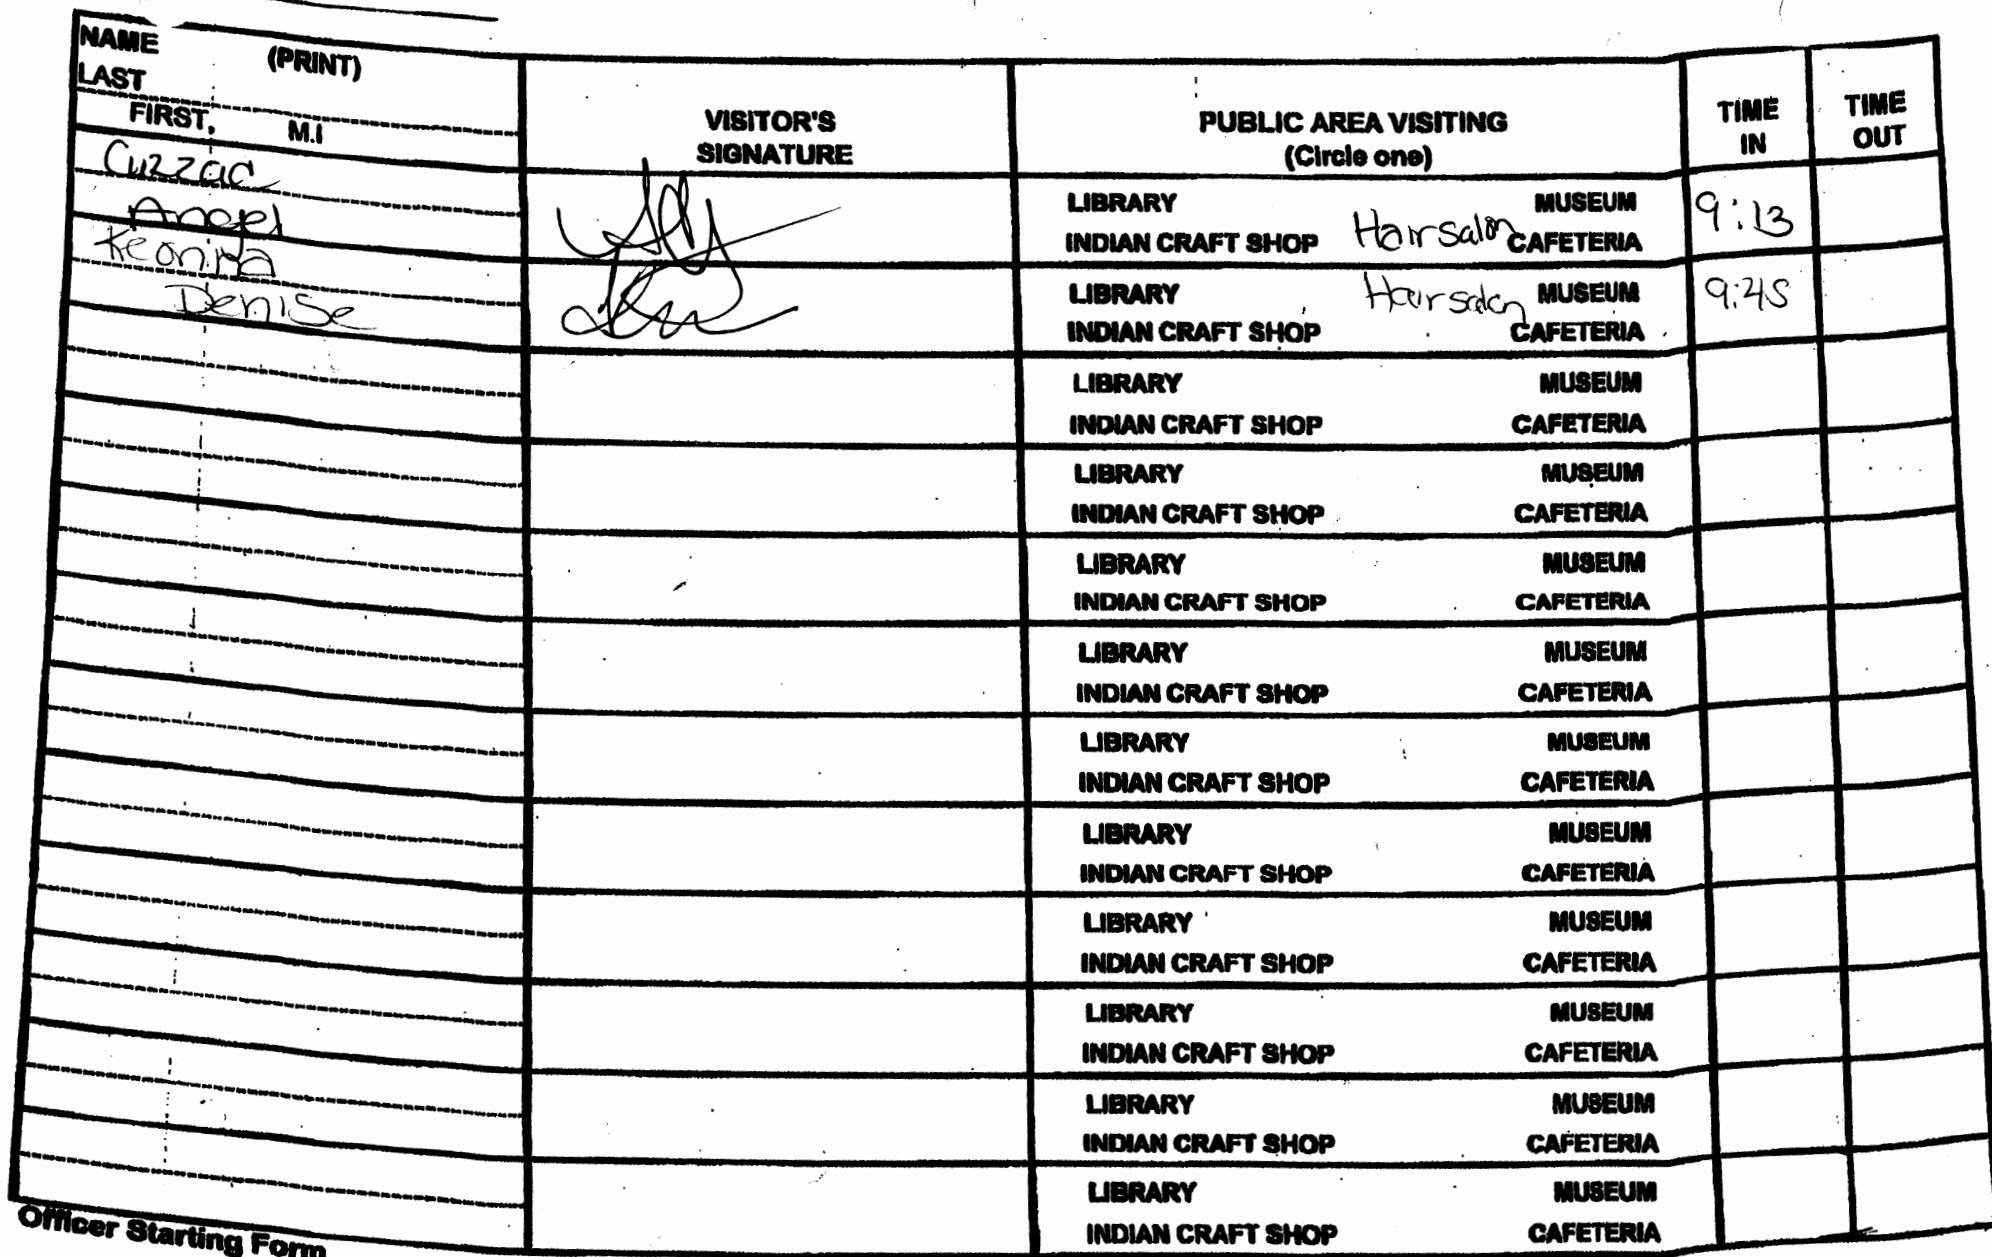 NAME (PRINT)
LAST
FIRST, M.I
VISITOR'S
SIGNATURE
PUBLIC AREA VISITING
(Circle one)
TIME
IN
TIME
OUT
Cuzzac
Angel
LIBRARY MUSEUM
INDIAN CRAFT SHOP Hairsalon CAFETERIA
9:13
Denise
LIBRARY Hairsalon MUSEUM
INDIAN CRAFT SHOP CAFETERIA
9:45
LIBRARY MUSEUM
INDIAN CRAFT SHOP CAFETERIA
LIBRARY MUSEUM
INDIAN CRAFT SHOP CAFETERIA
LIBRARY MUSEUM
INDIAN CRAFT SHOP CAFETERIA
LIBRARY MUSEUM
INDIAN CRAFT SHOP CAFETERIA
LIBRARY MUSEUM
INDIAN CRAFT SHOP CAFETERIA
LIBRARY MUSEUM
INDIAN CRAFT SHOP CAFETERIA
LIBRARY MUSEUM
INDIAN CRAFT SHOP CAFETERIA
LIBRARY MUSEUM
INDIAN CRAFT SHOP CAFETERIA
LIBRARY MUSEUM
INDIAN CRAFT SHOP CAFETERIA
LIBRARY MUSEUM
INDIAN CRAFT SHOP CAFETERIA
Officer Starting Form